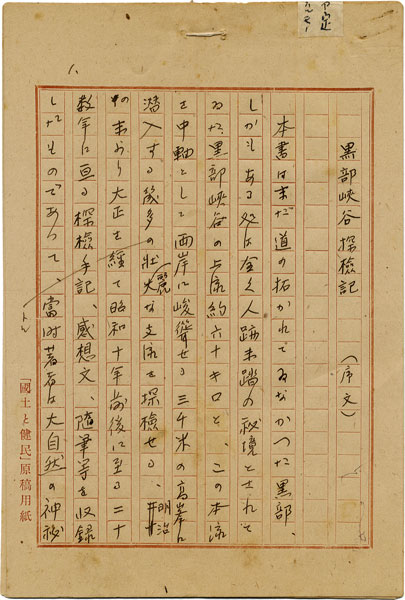 黒部峡谷探検記　（序文）
本書は未だ道の拓かれてゐなかつた黒部、
しかもある処は全く人跡未踏の秘境とされて
ゐた黒部峡谷の上流約六十キロと、この本流
を中軸として両岸に峻聳せる三千米の高岸に
潜入する幾多の壮麗な支流を探検せる、明治
末より大正を経て昭和十年前後に至る二十
数年に亘る探検手記、感想文、随筆等を収録
したものであつて、當時著者は大自然の神秘
「國土と健民」原稿用紙